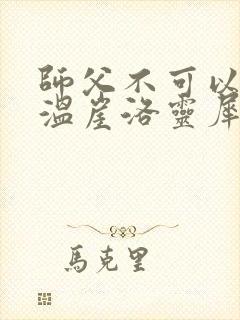 師父不可以
溫崖洛靈犀
馬克里